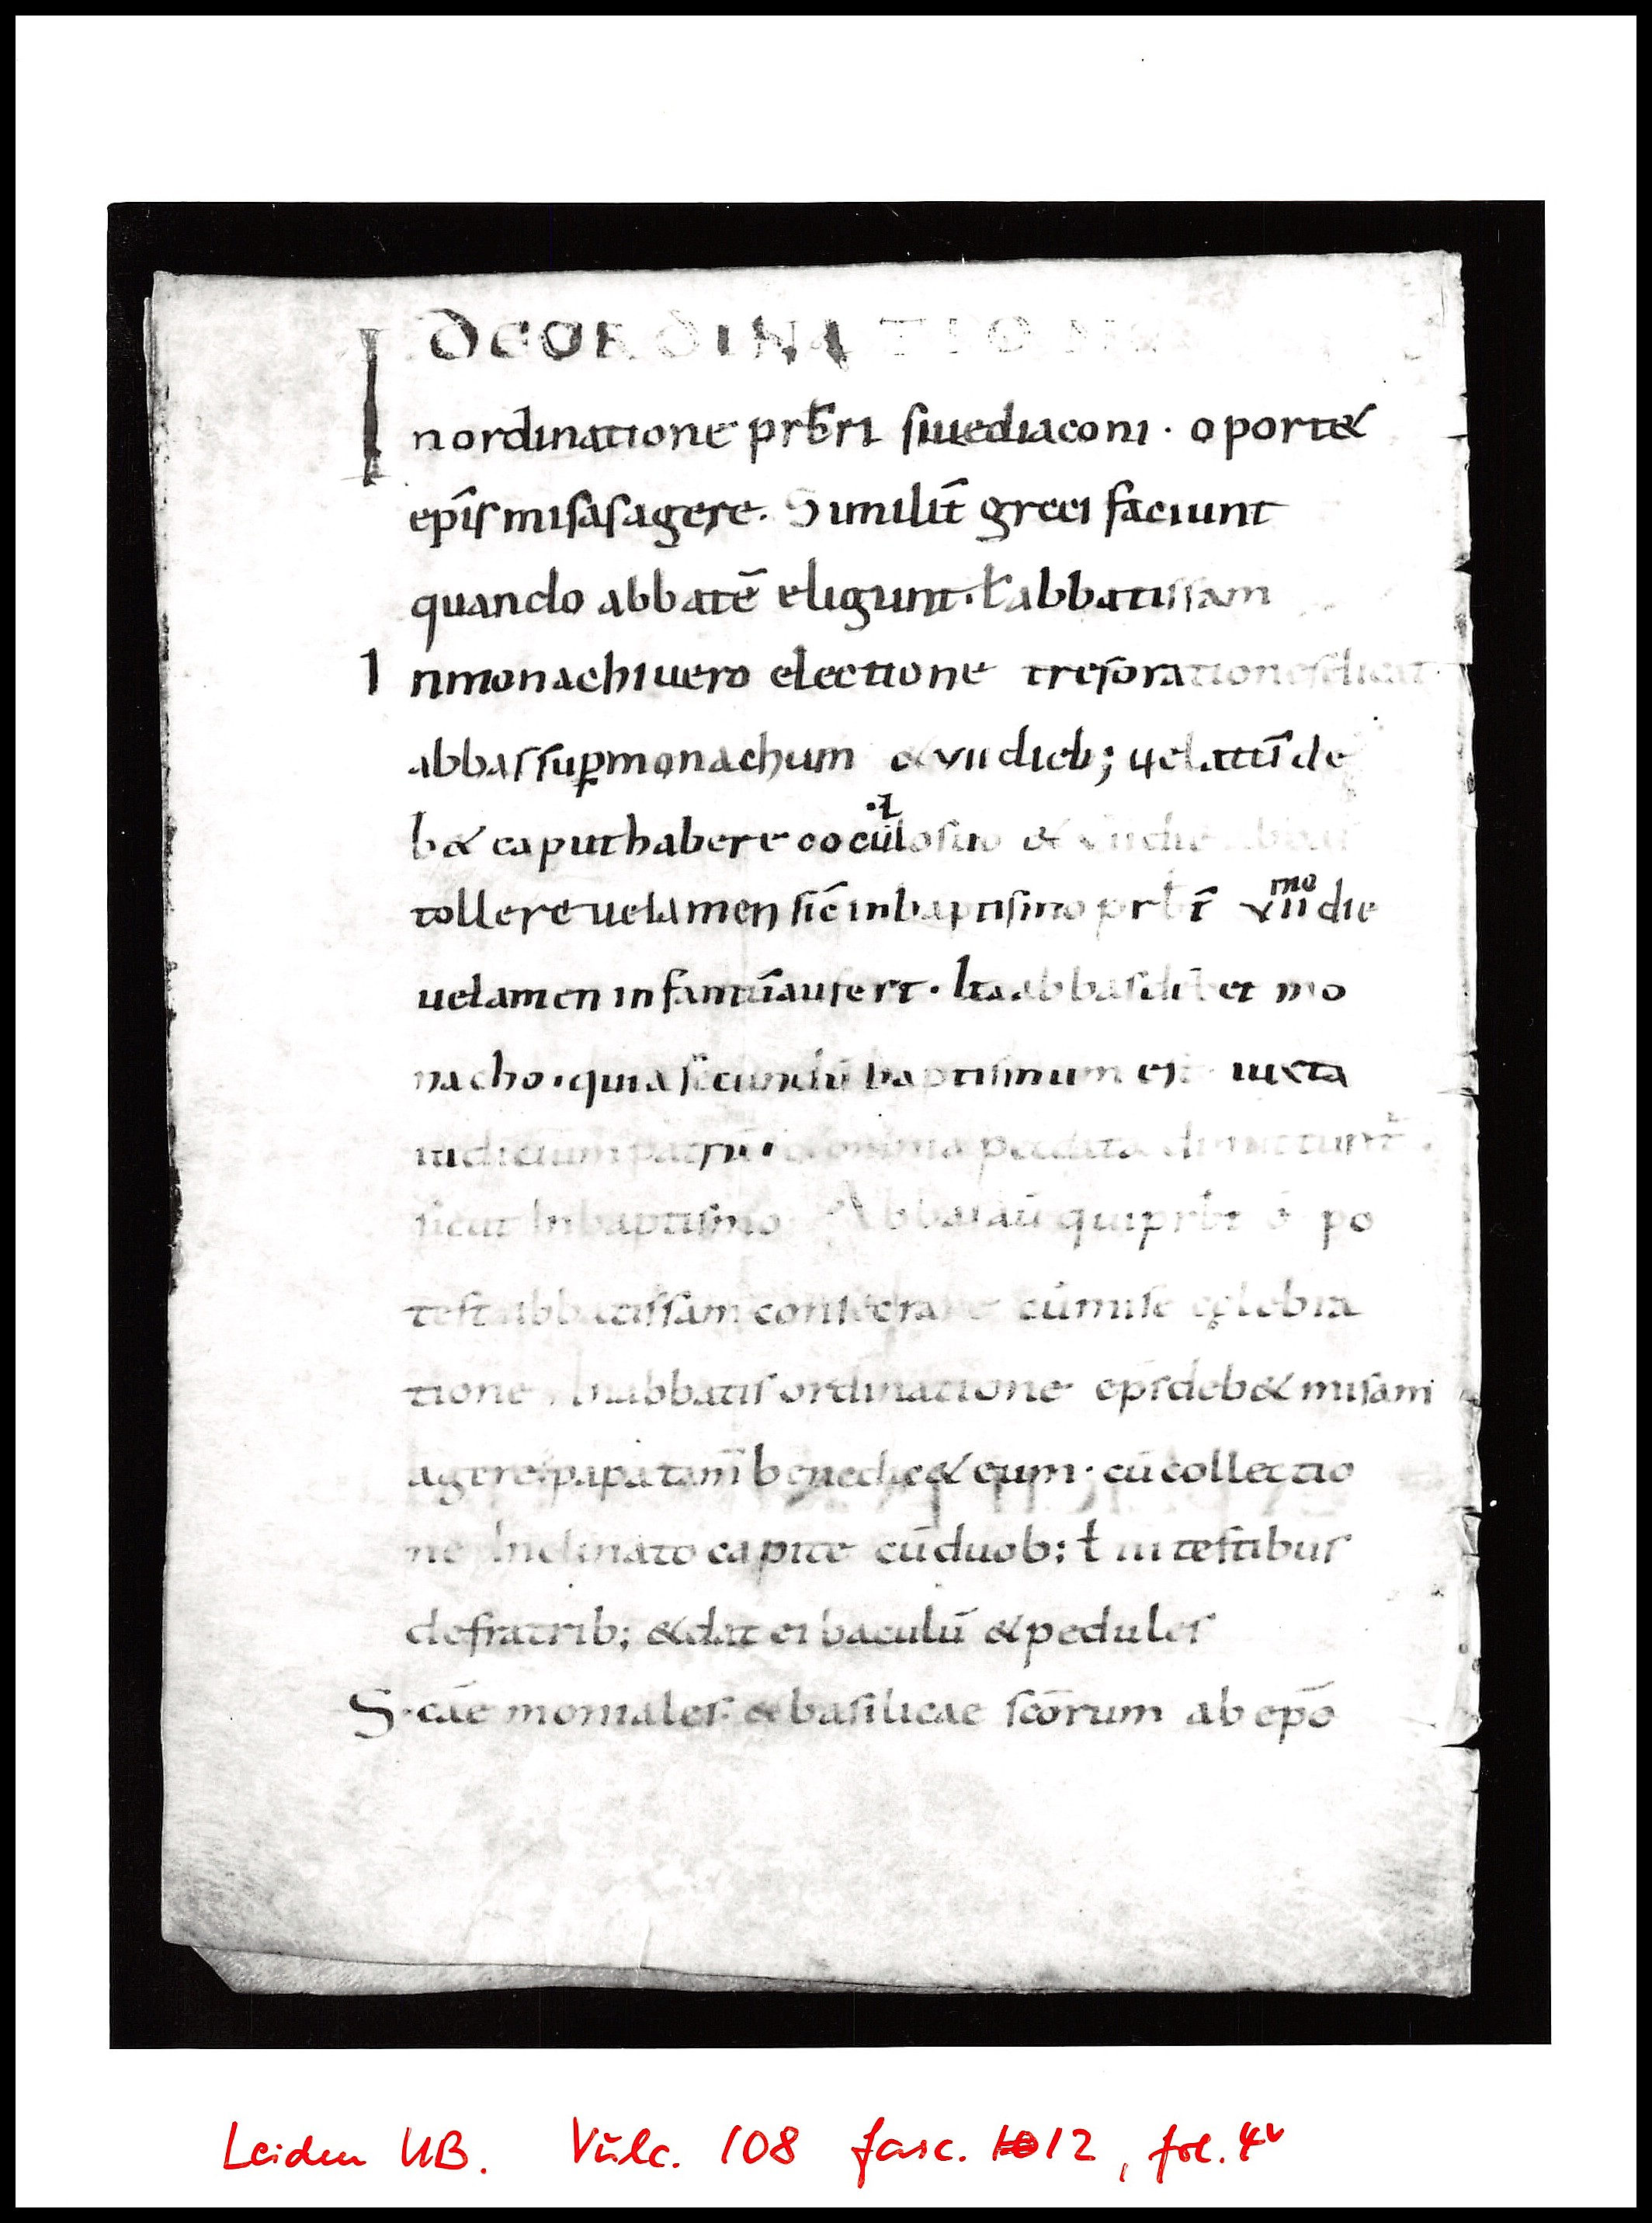 DEORDINATIONE
Inordinatione prƀri siuediaconi · oport&
epīs misas agere. Similit̄ greci faciunt
quando abbatē eligunt · ƚ abbatissam
Inmonachi uero electione tres orationes dicat
abbas sup̱ monachum & vii dieb; uelatū de
b& caput habere coculo suo & vii die abbas
tollere uelamen sic̄ in baptismo prƀr̄ viimo die
uelamen infantū aufert · Ita abbas debet mo
nacho · quia secundū baptismum est iuxta
iudicium patrū · & omnia peccata dimittunt᷑ ·
sicut In baptismo Abbas aū qui prƀr ē po
test abbatissam consecrare cū mise celebra
tione · In abbatis ordinatione ep̄s deb& misam
agere papa tam̄ benedic& eum · cū collectio
ne Inclinato capite cū duob; ƚ iii testibus
de fratrib; & dat ei baculū & pedules
S·cāe moniales · & basilicae scōrum ab epō
Leiden UB. Vulc. 108 fasc. 12, fol. 4v